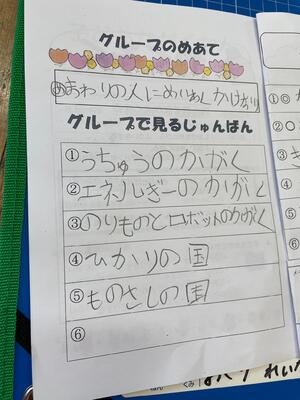 グループのめあて
めまわりの人にめいわくかけない
グループで見るじゅんばん
①うちゅうのかがく
②エネルギーのかがく
③のりものとロボットのかがく
④ひかりの国
⑤ものさしの国
⑥
①◎
②○
③き
④
⑤
⑥